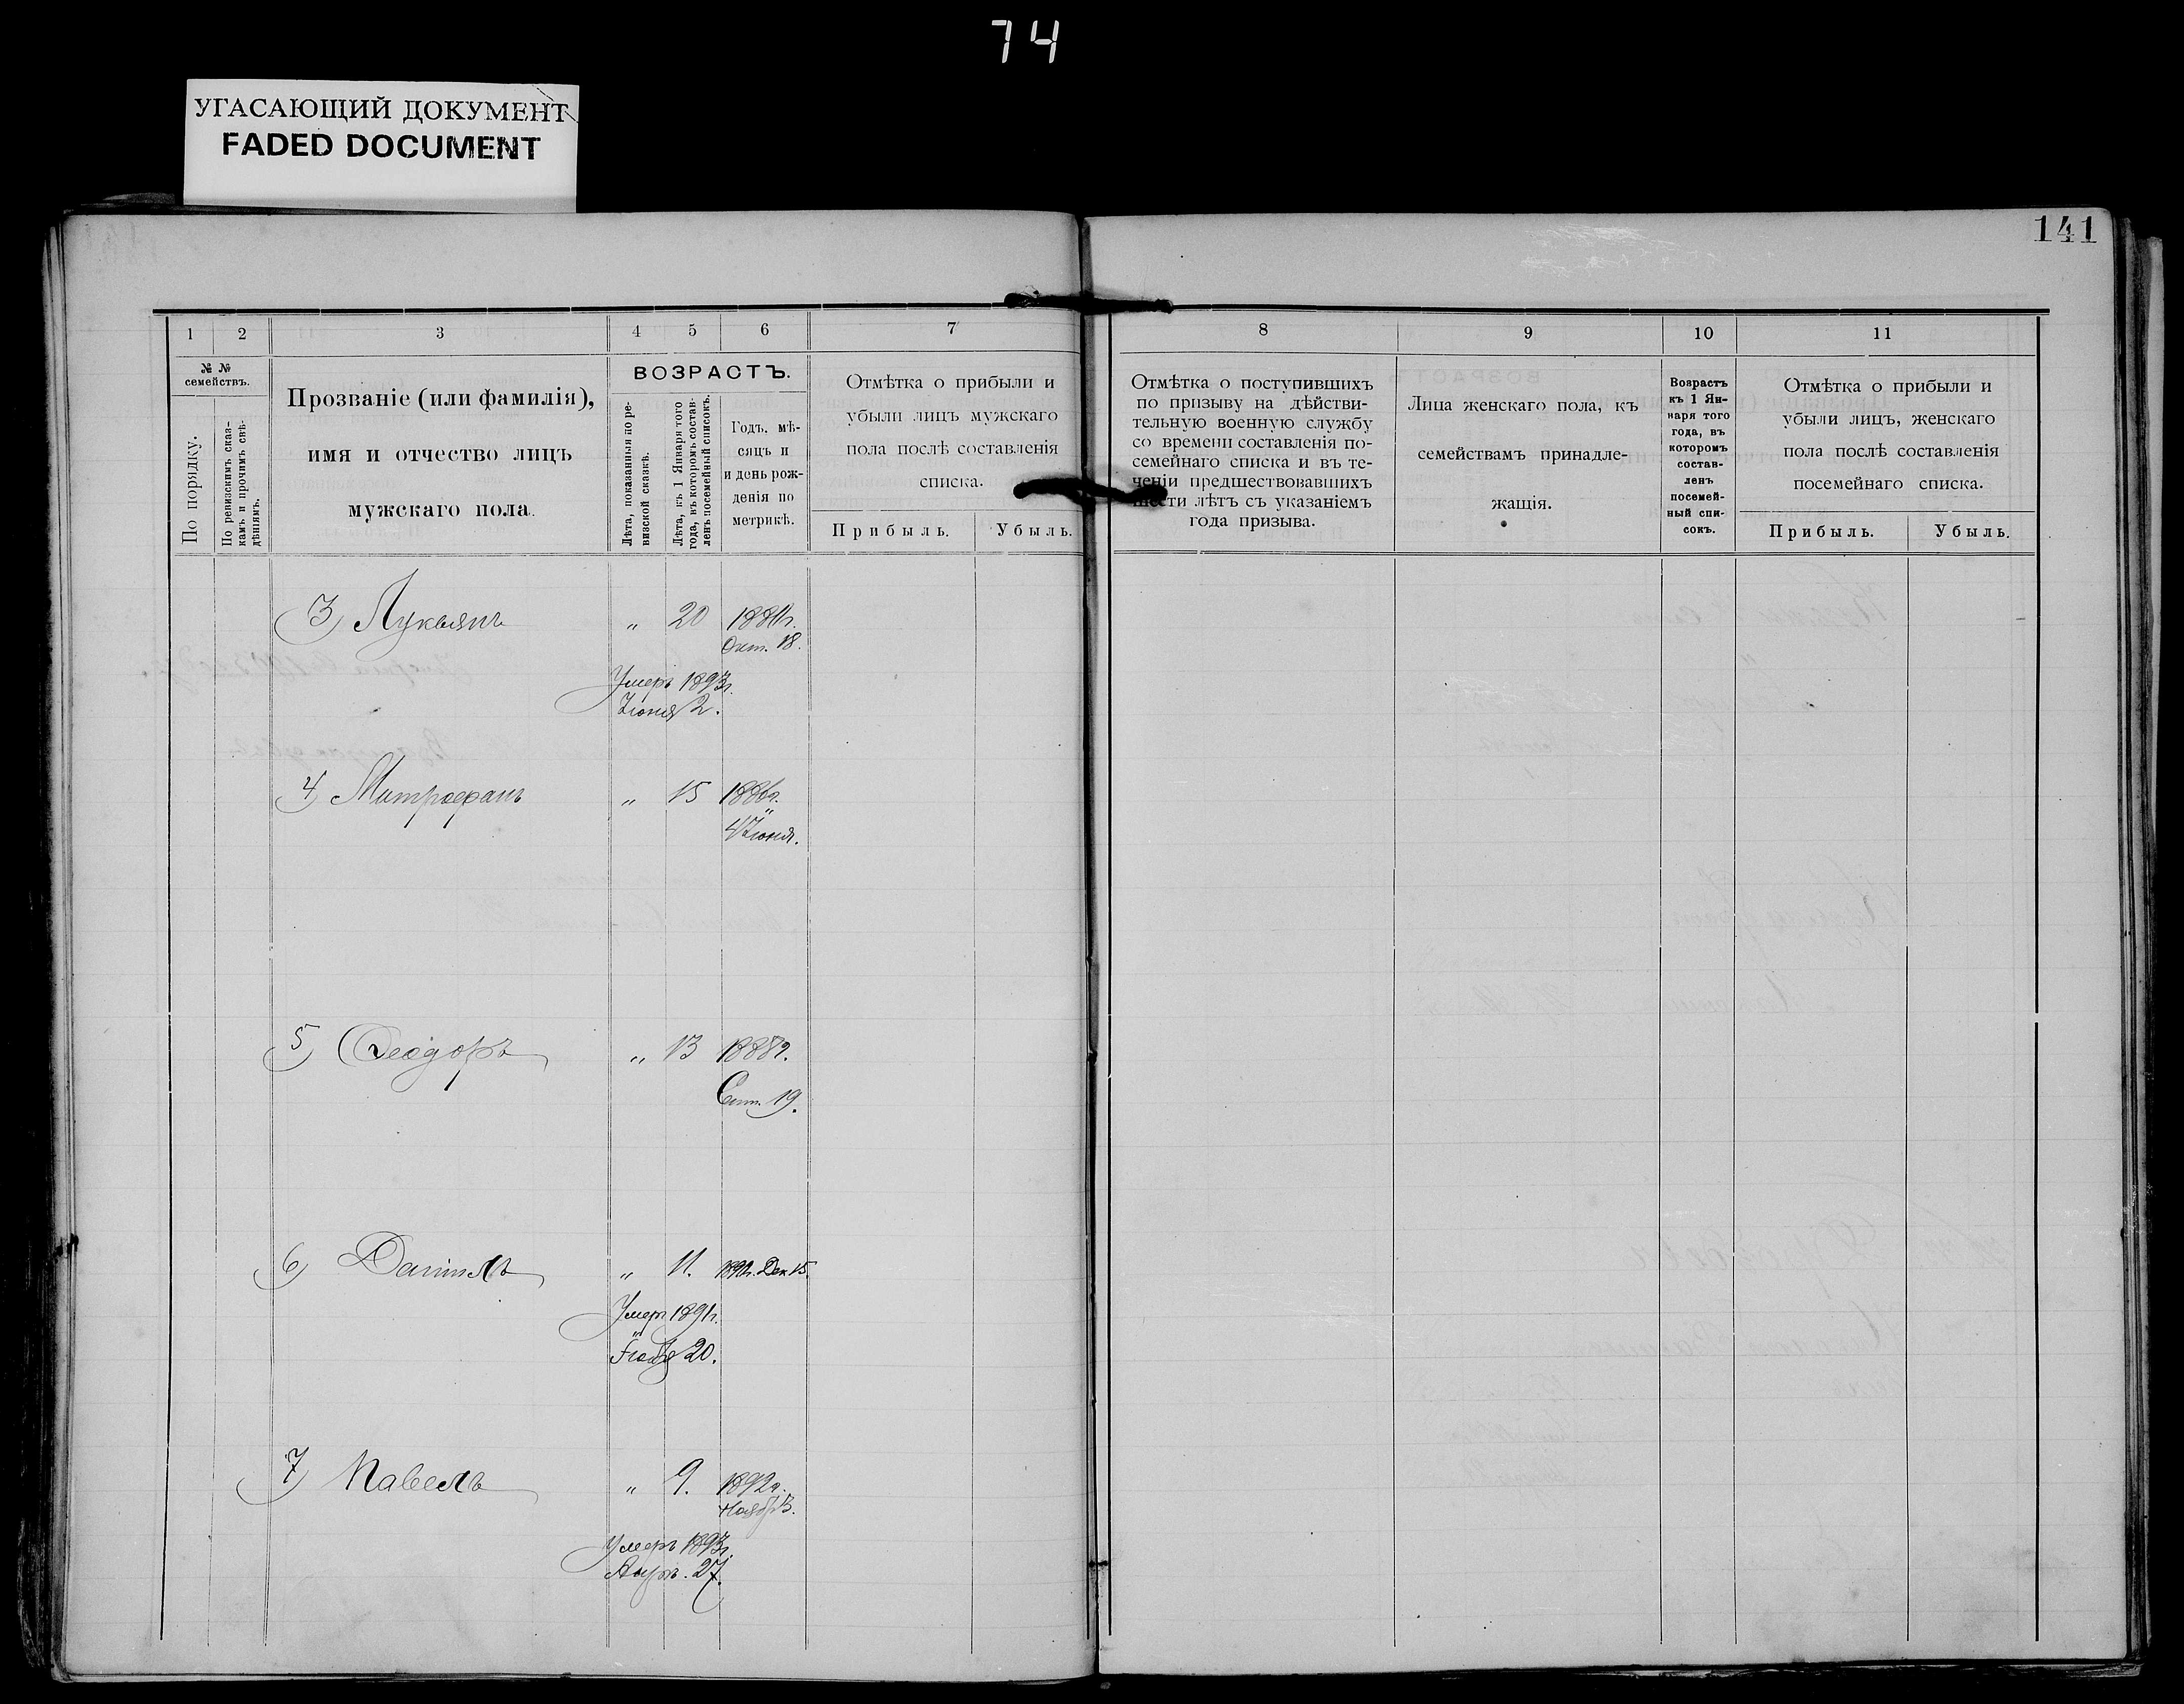 74
УГАСАЮЩИЙ ДОКУМЕНТ
FADED DOCUMENT
141
1 2 3 4 5 6 7 8 9 10 11
№ №
семействъ.
По порядку.
По ревизскимъ сказ-
камъ и прочимъ свѣ-
дѣніямъ.
Прозваніе (или фамилія),
имя и отчество лицъ
мужскаго пола.
ВОЗРАСТЪ.
Лѣта, показанныя по ре-
визской сказкѣ.
Лѣта, къ 1 Января того
года, въ которомъ состав-
ленъ посемейный списокъ.
Годъ, мѣ-
сяцъ и
и день рож-
денія по
метрикѣ.
Отмѣтка о прибыли и
убыли лицъ мужскаго
пола послѣ составленія
списка.
Прибыль. Убыль.
Отмѣтка о поступившихъ
по призыву на дѣйстви-
тельную военную службу
со времени составленія по-
семейнаго списка и въ те-
ченіи предшествовавшихъ
шести лѣтъ съ указаніемъ
года призыва.
Лица женскаго пола, къ
семействамъ принадле-
жащія.
Возрастъ
къ 1 Ян-
варя того
года, въ
которомъ
состав-
ленъ
посемей-
ный спи-
сокъ.
Отмѣтка о прибыли и
убыли лицъ, женскаго
пола послѣ составленія
посемейнаго списка.
Прибыль. Убыль.
3) Лукьянъ " 20 1881г.
Окт. 18.
Умеръ 1893г.
Іюня 2.
4) Митрофанъ " 15 1886г.
4 Іюня.
5) Ѳеодоръ " 13 1888г.
Сент. 19.
6) Даніилъ " 11. Дек 15.
Умеръ 1891г.
20.
7) Павелъ " 9. 1892г.
Ноябр 3.
Умеръ 1893г.
27.